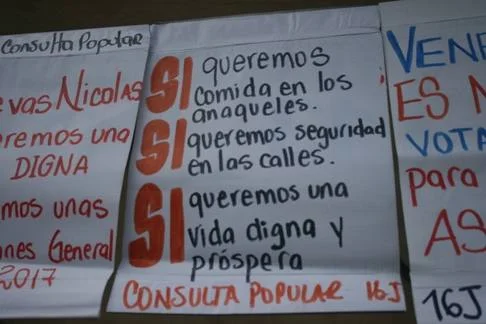 Consulta Popular
vas Nicolas
remos una
DIGNA
mos unas
ones General
2017
SI queremos
comida en los
anaqueles.
SI queremos seguridad
en las calles.
SI queremos una
vida digna y
próspera
CONSULTA POPULAR 16J
VENE
ES
VOTA
para
AS
16J